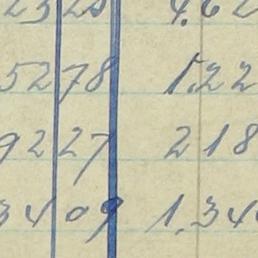 2325 4.62
5278 1.22
9227 218
3409 1.34